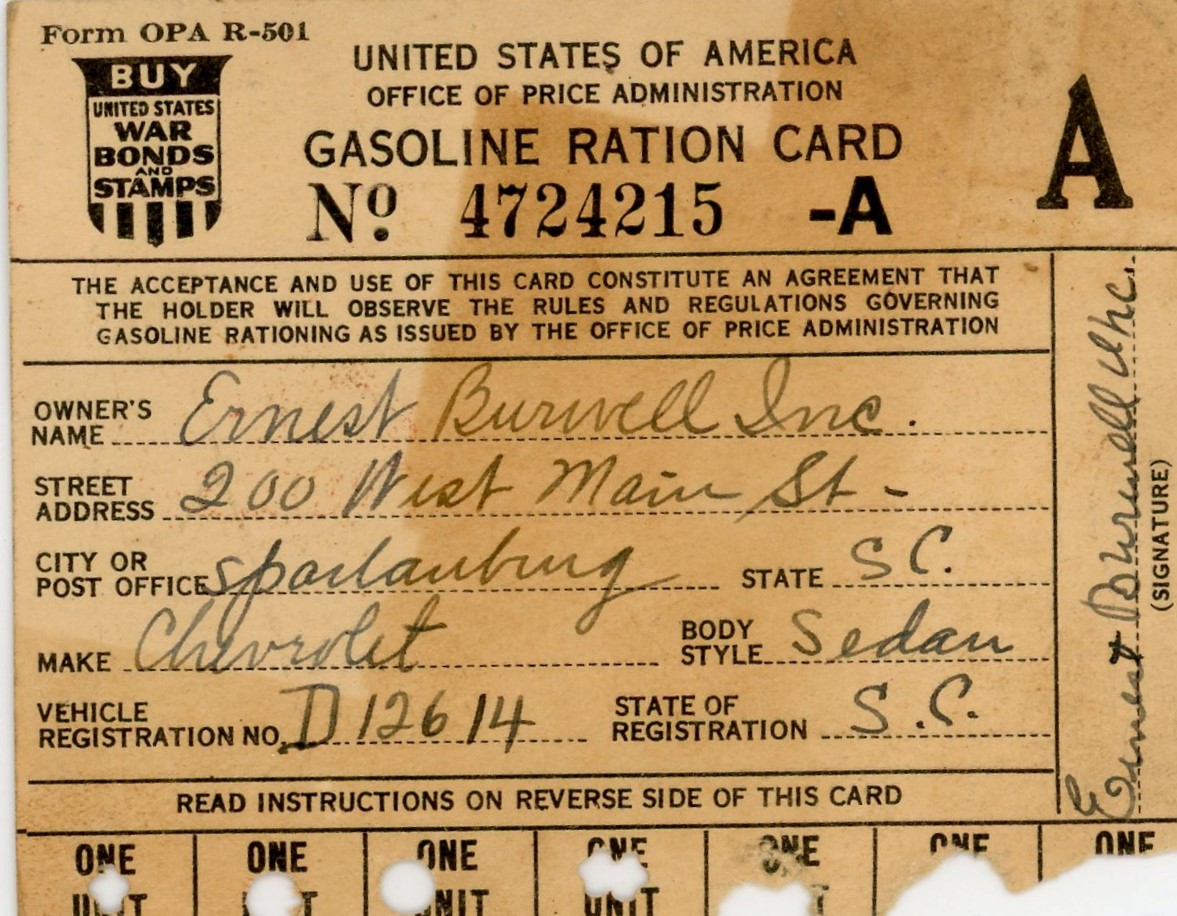 Form OPA R-501
BUY
UNITED STATES
WAR
BONDS
AND
STAMPS
UNITED STATES OF AMERICA
OFFICE OF PRICE ADMINISTRATION
GASOLINE RATION CARD
No. 4724215 -A
A
THE ACCEPTANCE AND USE OF THIS CARD CONSTITUTE AN AGREEMENT THAT
THE HOLDER WILL OBSERVE THE RULES AND REGULATIONS GOVERNING
GASOLINE RATIONING AS ISSUED BY THE OFFICE OF PRICE ADMINISTRATION
OWNER'S NAME Ernest Burwell Inc.
STREET ADDRESS 200 West Main St -
CITY OR POST OFFICE Spartanburg STATE S.C.
MAKE Chevrolet BODY STYLE Sedan
VEHICLE REGISTRATION NO. D12614 STATE OF REGISTRATION S.C.
Ernest Burwell Inc.
(SIGNATURE)
READ INSTRUCTIONS ON REVERSE SIDE OF THIS CARD
ONE ONE ONE ONE ONE ONE ONE
UNIT UNIT UNIT